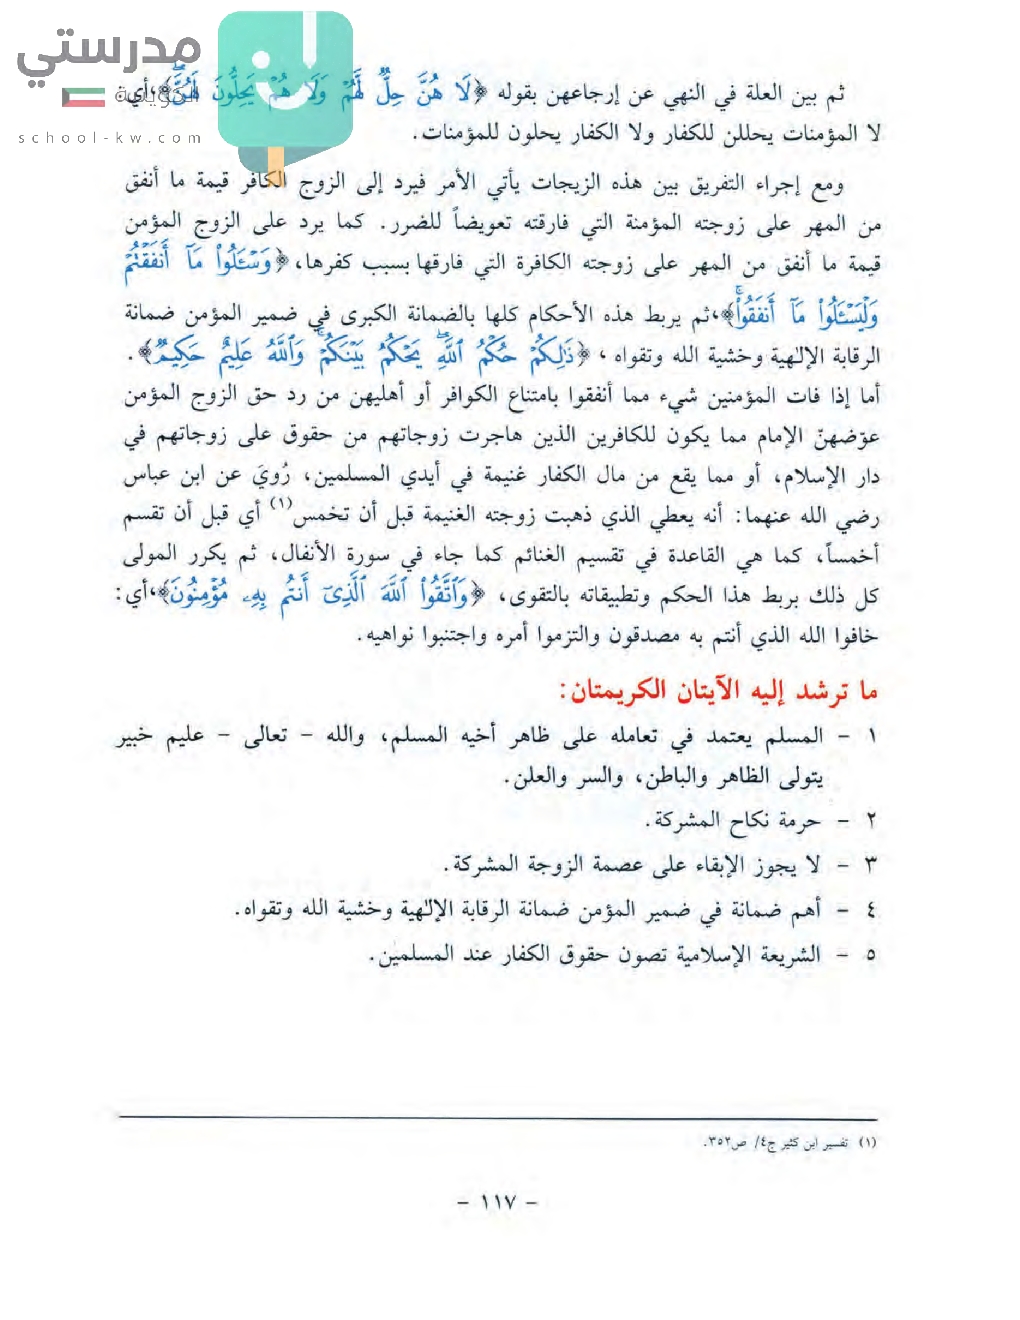 مدرستي
الكويتية
school-kw.com
ثم بين العلة في النهي عن إرجاعهن بقوله ﴿لَا هُنَّ حِلٌّ لَّهُمْ وَلَا هُمْ يَحِلُّونَ لَهُنَّ﴾، أي:
لا المؤمنات يحللن للكفار ولا الكفار يحلون للمؤمنات.
ومع إجراء التفريق بين هذه الزيجات يأتي الأمر فيرد إلى الزوج الكافر قيمة ما أنفق
من المهر على زوجته المؤمنة التي فارقته تعويضاً للضرر. كما يرد على الزوج المؤمن
قيمة ما أنفق من المهر على زوجته الكافرة التي فارقها بسبب كفرها، ﴿وَسْـَٔلُوا۟ مَآ أَنفَقْتُمْ
وَلْيَسْـَٔلُوا۟ مَآ أَنفَقُوا۟ۚ﴾، ثم يربط هذه الأحكام كلها بالضمانة الكبرى في ضمير المؤمن ضمانة
الرقابة الإلهية وخشية الله وتقواه ، ﴿ذَٰلِكُمْ حُكْمُ ٱللَّهِۖ يَحْكُمُ بَيْنَكُمْۚ وَٱللَّهُ عَلِيمٌ حَكِيمٌ﴾ .
أما إذا فات المؤمنين شيء مما أنفقوا بامتناع الكوافر أو أهليهن من رد حق الزوج المؤمن
عوّضهنّ الإمام مما يكون للكافرين الذين هاجرت زوجاتهم من حقوق على زوجاتهم في
دار الإسلام، أو مما يقع من مال الكفار غنيمة في أيدي المسلمين، رُويَ عن ابن عباس
رضي الله عنهما: أنه يعطي الذي ذهبت زوجته الغنيمة قبل أن تخمس(١) أي قبل أن تقسم
أخمساً، كما هي القاعدة في تقسيم الغنائم كما جاء في سورة الأنفال، ثم يكرر المولى
كل ذلك بربط هذا الحكم وتطبيقاته بالتقوى، ﴿وَٱتَّقُوا۟ ٱللَّهَ ٱلَّذِىٓ أَنتُم بِهِۦ مُؤْمِنُونَ﴾، أي:
خافوا الله الذي أنتم به مصدقون والتزموا أمره واجتنبوا نواهيه.
ما ترشد إليه الآيتان الكريمتان:
١ - المسلم يعتمد في تعامله على ظاهر أخيه المسلم، والله - تعالى - عليم خبير
يتولى الظاهر والباطن، والسر والعلن.
٢ - حرمة نكاح المشركة.
٣ - لا يجوز الإبقاء على عصمة الزوجة المشركة.
٤ - أهم ضمانة في ضمير المؤمن ضمانة الرقابة الإلهية وخشية الله وتقواه.
٥ - الشريعة الإسلامية تصون حقوق الكفار عند المسلمين.
(١) تفسير ابن كثير ج٤/ ص٣٥٢.
- ١١٧ -